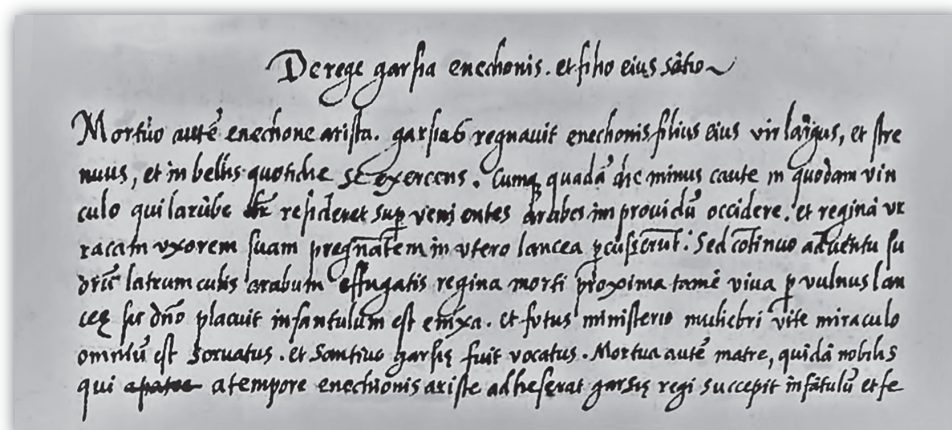 De rege garsia enechonis. et filio eius sãtio
Mortuo autẽ enechone arista. garsias regnauit enechonis filius eius vir largus, et stre
nuus, et in bellis quotidie se exercens. Cumq quadã die minus caute in quodam vin
culo qui larũbe resideret supervenientes arabes improuidũ occidere. et reginã vr
racam vxorem suam pregnãtem in vtero lancea pcusserũt. Sed cõtinuo aduentu su
orũ latrumculis arabum effugatis regina morti proxima tamẽ viua p vulnus lan
ceę sic dño placuit infantulum est enixa. et futus ministerio muliebri vite miraculo
omniũ est seruatus. et Santius garsię fuit vocatus. Mortua autẽ matre, quidã nobilis
qui a tempore enechonis ariste adheserat garsię regi succepit infãtulũ et fe